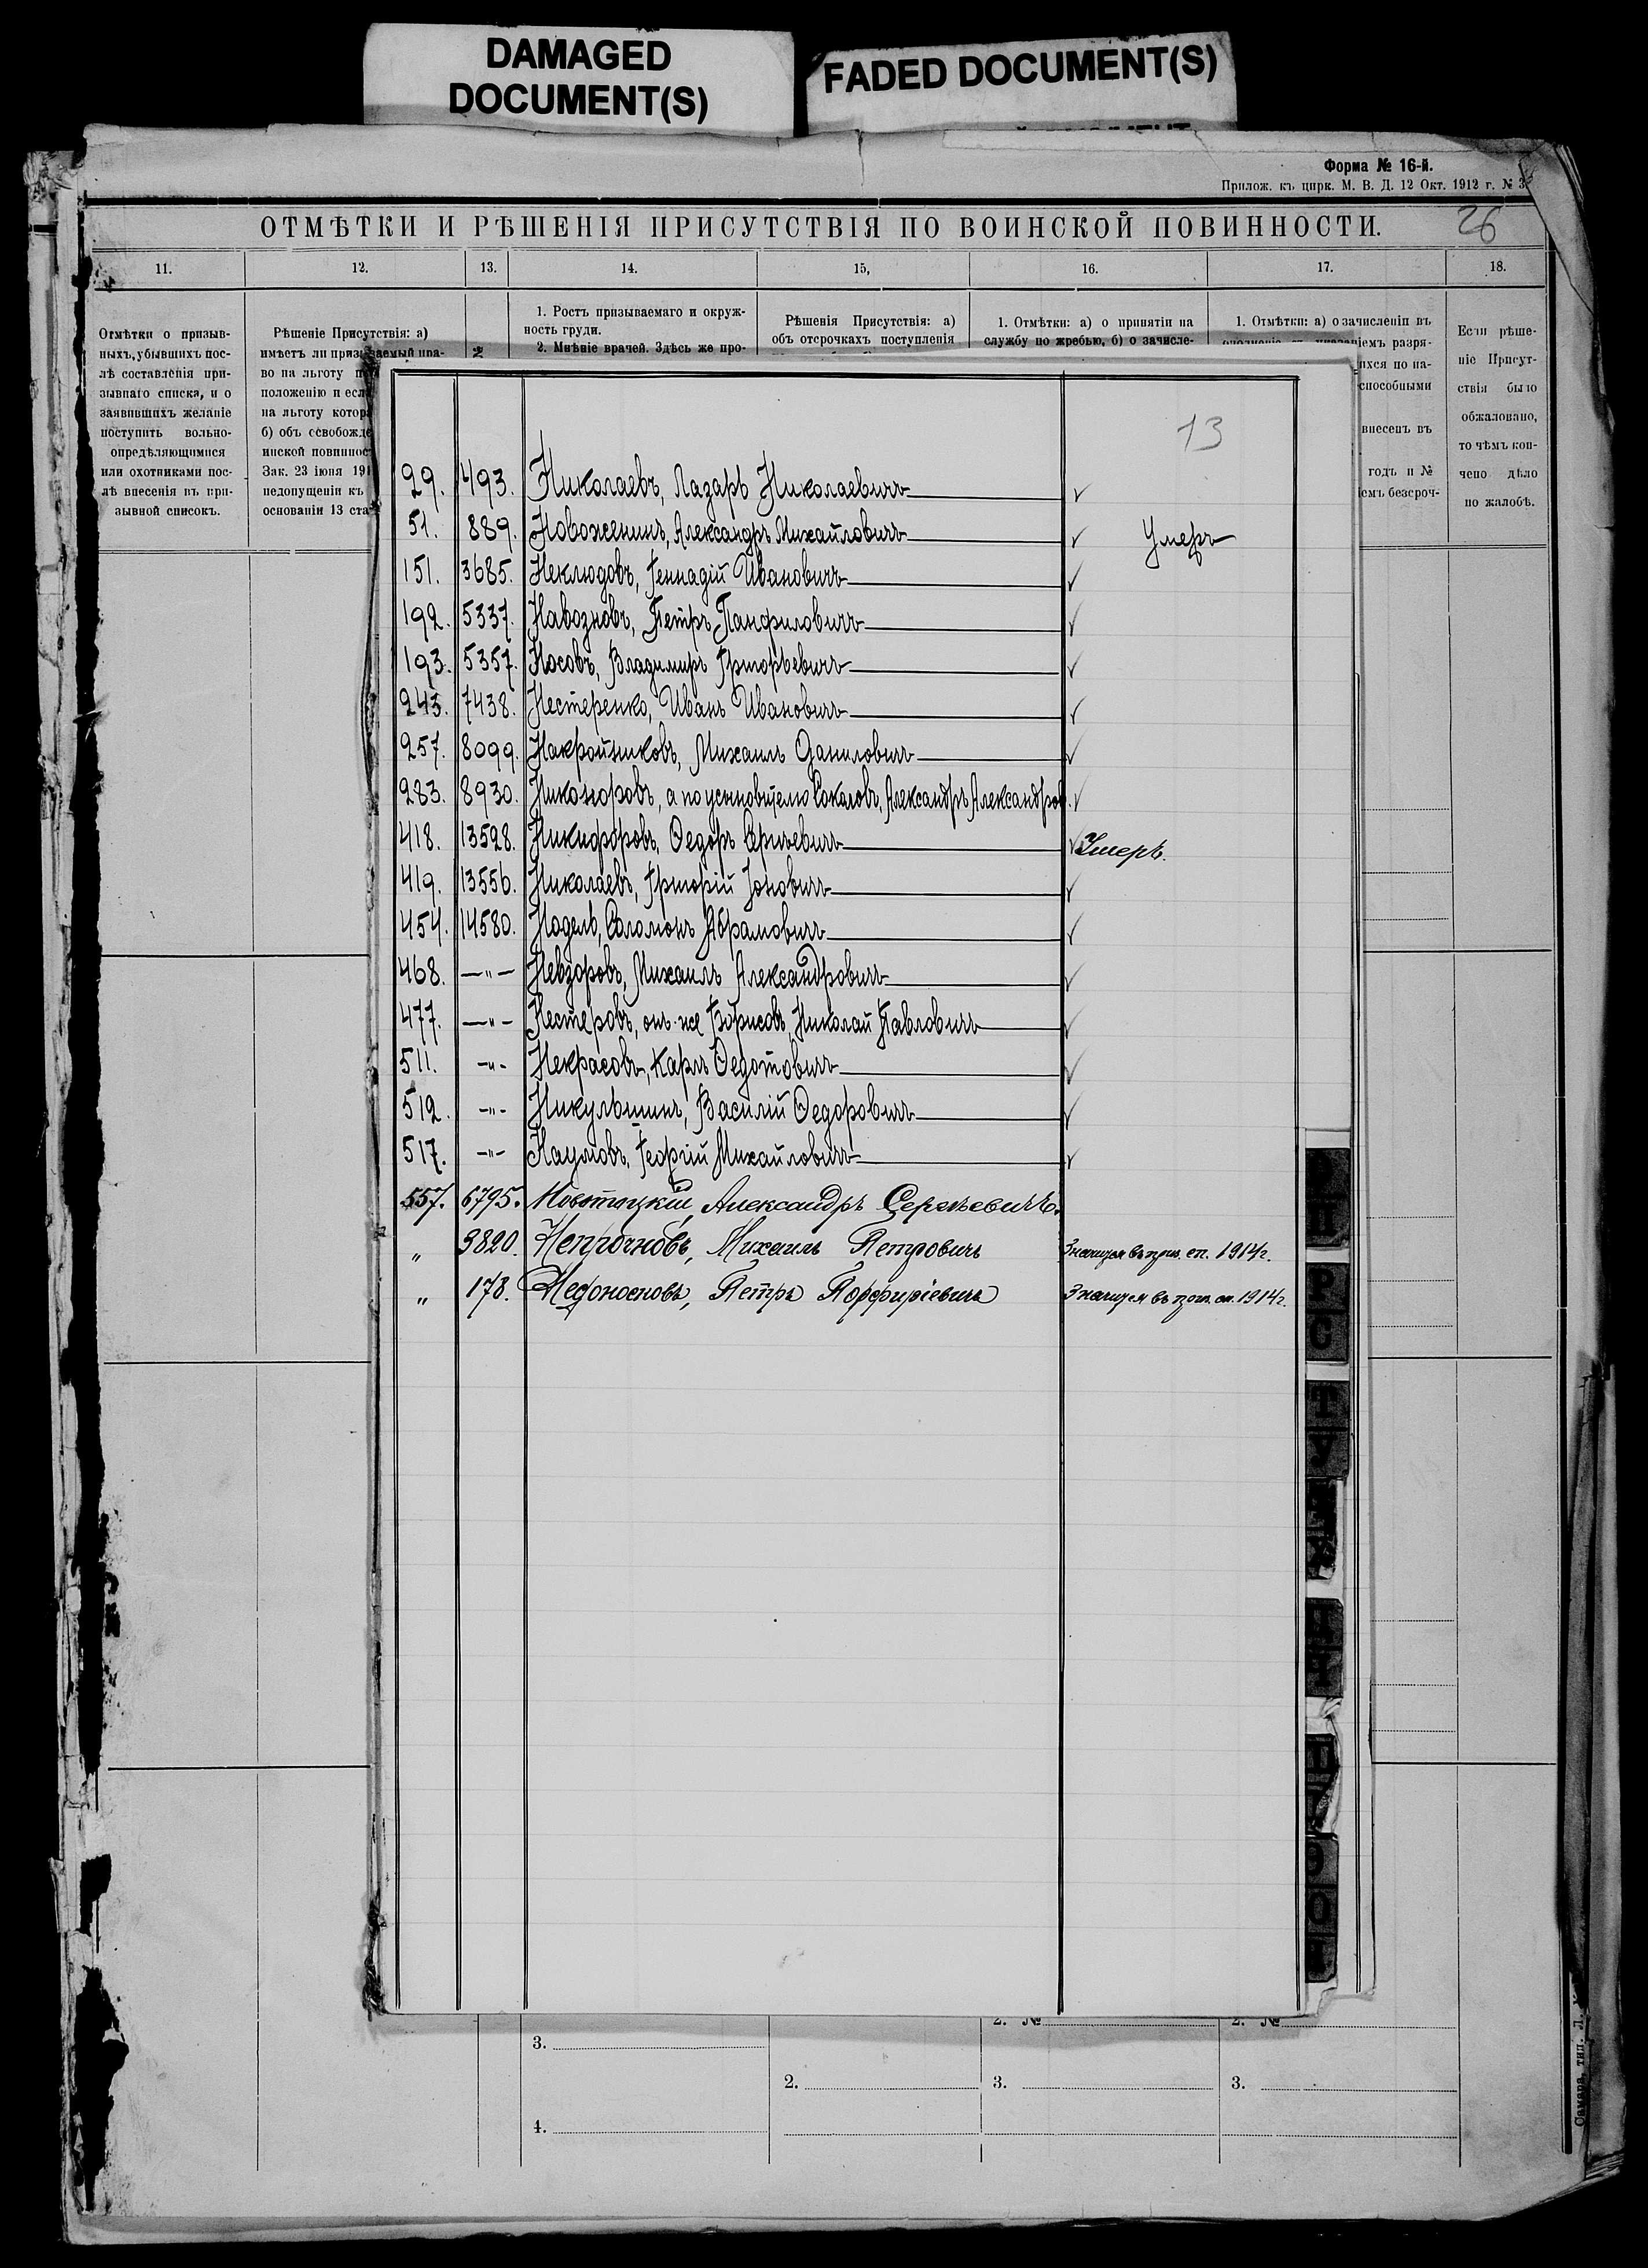 DAMAGED
DOCUMENT(S)
FADED DOCUMENT(S)
Форма № 16-й.
Прилож. къ цирк. М. В. Д. 12 Окт. 1912 г. № 3
ОТМѢТКИ И РѢШЕНІЯ ПРИСУТСТВІЯ ПО ВОИНСКОЙ ПОВИННОСТИ.
26
11. 12. 13. 14. 15, 16. 17. 18.
Отмѣтки о призыв-
ныхъ, убывшихъ пос-
лѣ составленія при-
зывнаго списка, и о
заявившихъ желаніе
поступить вольно-
опредѣляющимися
или охотниками пос-
лѣ внесенія въ при-
зывной списокъ.
Рѣшеніе Присутствія: а)
имѣетъ ли призываемый пра-
во на льготу п
положенію и есл
на льготу котор
б) объ освобожде
инской повиннос
Зак. 23 іюня 191
недопущеніи къ
основаніи 13 ста
1. Ростъ призываемаго и окруж-
ность груди.
2. Мнѣніе врачей. Здѣсь же про-
Рѣшенія Присутствія: а)
объ отсрочкахъ поступленія
1. Отмѣтки: а) о принятіи на
службу по жребью, б) о зачисле-
1. Отмѣтки: а) о зачисленіи въ
ніемъ разря-
ихся по на-
способными
внесенъ въ
годъ и №
іемъ безсроч-
Если рѣше-
ніе Присут-
ствія было
обжаловано,
то чѣмъ кон-
чено дѣло
по жалобѣ.
13
29. 493. Николаевъ, Лазарь Николаевичъ
51. 889. Новоженинъ, Александръ Михайловичъ Умеръ
151. 3685. Неклюдовъ, Геннадій Ивановичъ
192. 5337. Навозновъ, Петръ Панфиловичъ
193. 5357. Носовъ, Владимиръ Григорьевичъ
243. 7438. Нестеренко, Иванъ Ивановичъ
257. 8099. Накройниковъ, Михаилъ Даниловичъ
283. 8930. Никоноровъ, а по усыновителю Соколовъ, Александръ Александров.
418. 13528. Никифоровъ, Ѳедоръ Сергѣевичъ Умеръ.
419. 13556. Николаевъ, Григорій Іоновичъ
454. 14580. Надель, Соломонъ Абрамовичъ
468. —"— Невзоровъ, Михаилъ Александровичъ
477. —"— Нестеровъ, онъ-же Борисовъ, Николай Павловичъ
511. -"- Некрасовъ, Карпъ Ѳедотовичъ
512. -"- Никульшинъ, Василій Ѳедоровичъ
517. -"- Наумовъ, Георгій Михайловичъ
557. 6795. Александръ Сергѣевичъ.
" 3820. Непрочновъ, Михаилъ Петровичъ Значится въ приз. сп. 1914г.
" 178. Недоносковъ, Петръ Порфиріевичъ Значится въ приз. сп. 1914г.
2. № 2. №
3.
2. 3. 3.
4.
Самара, тип. Л.